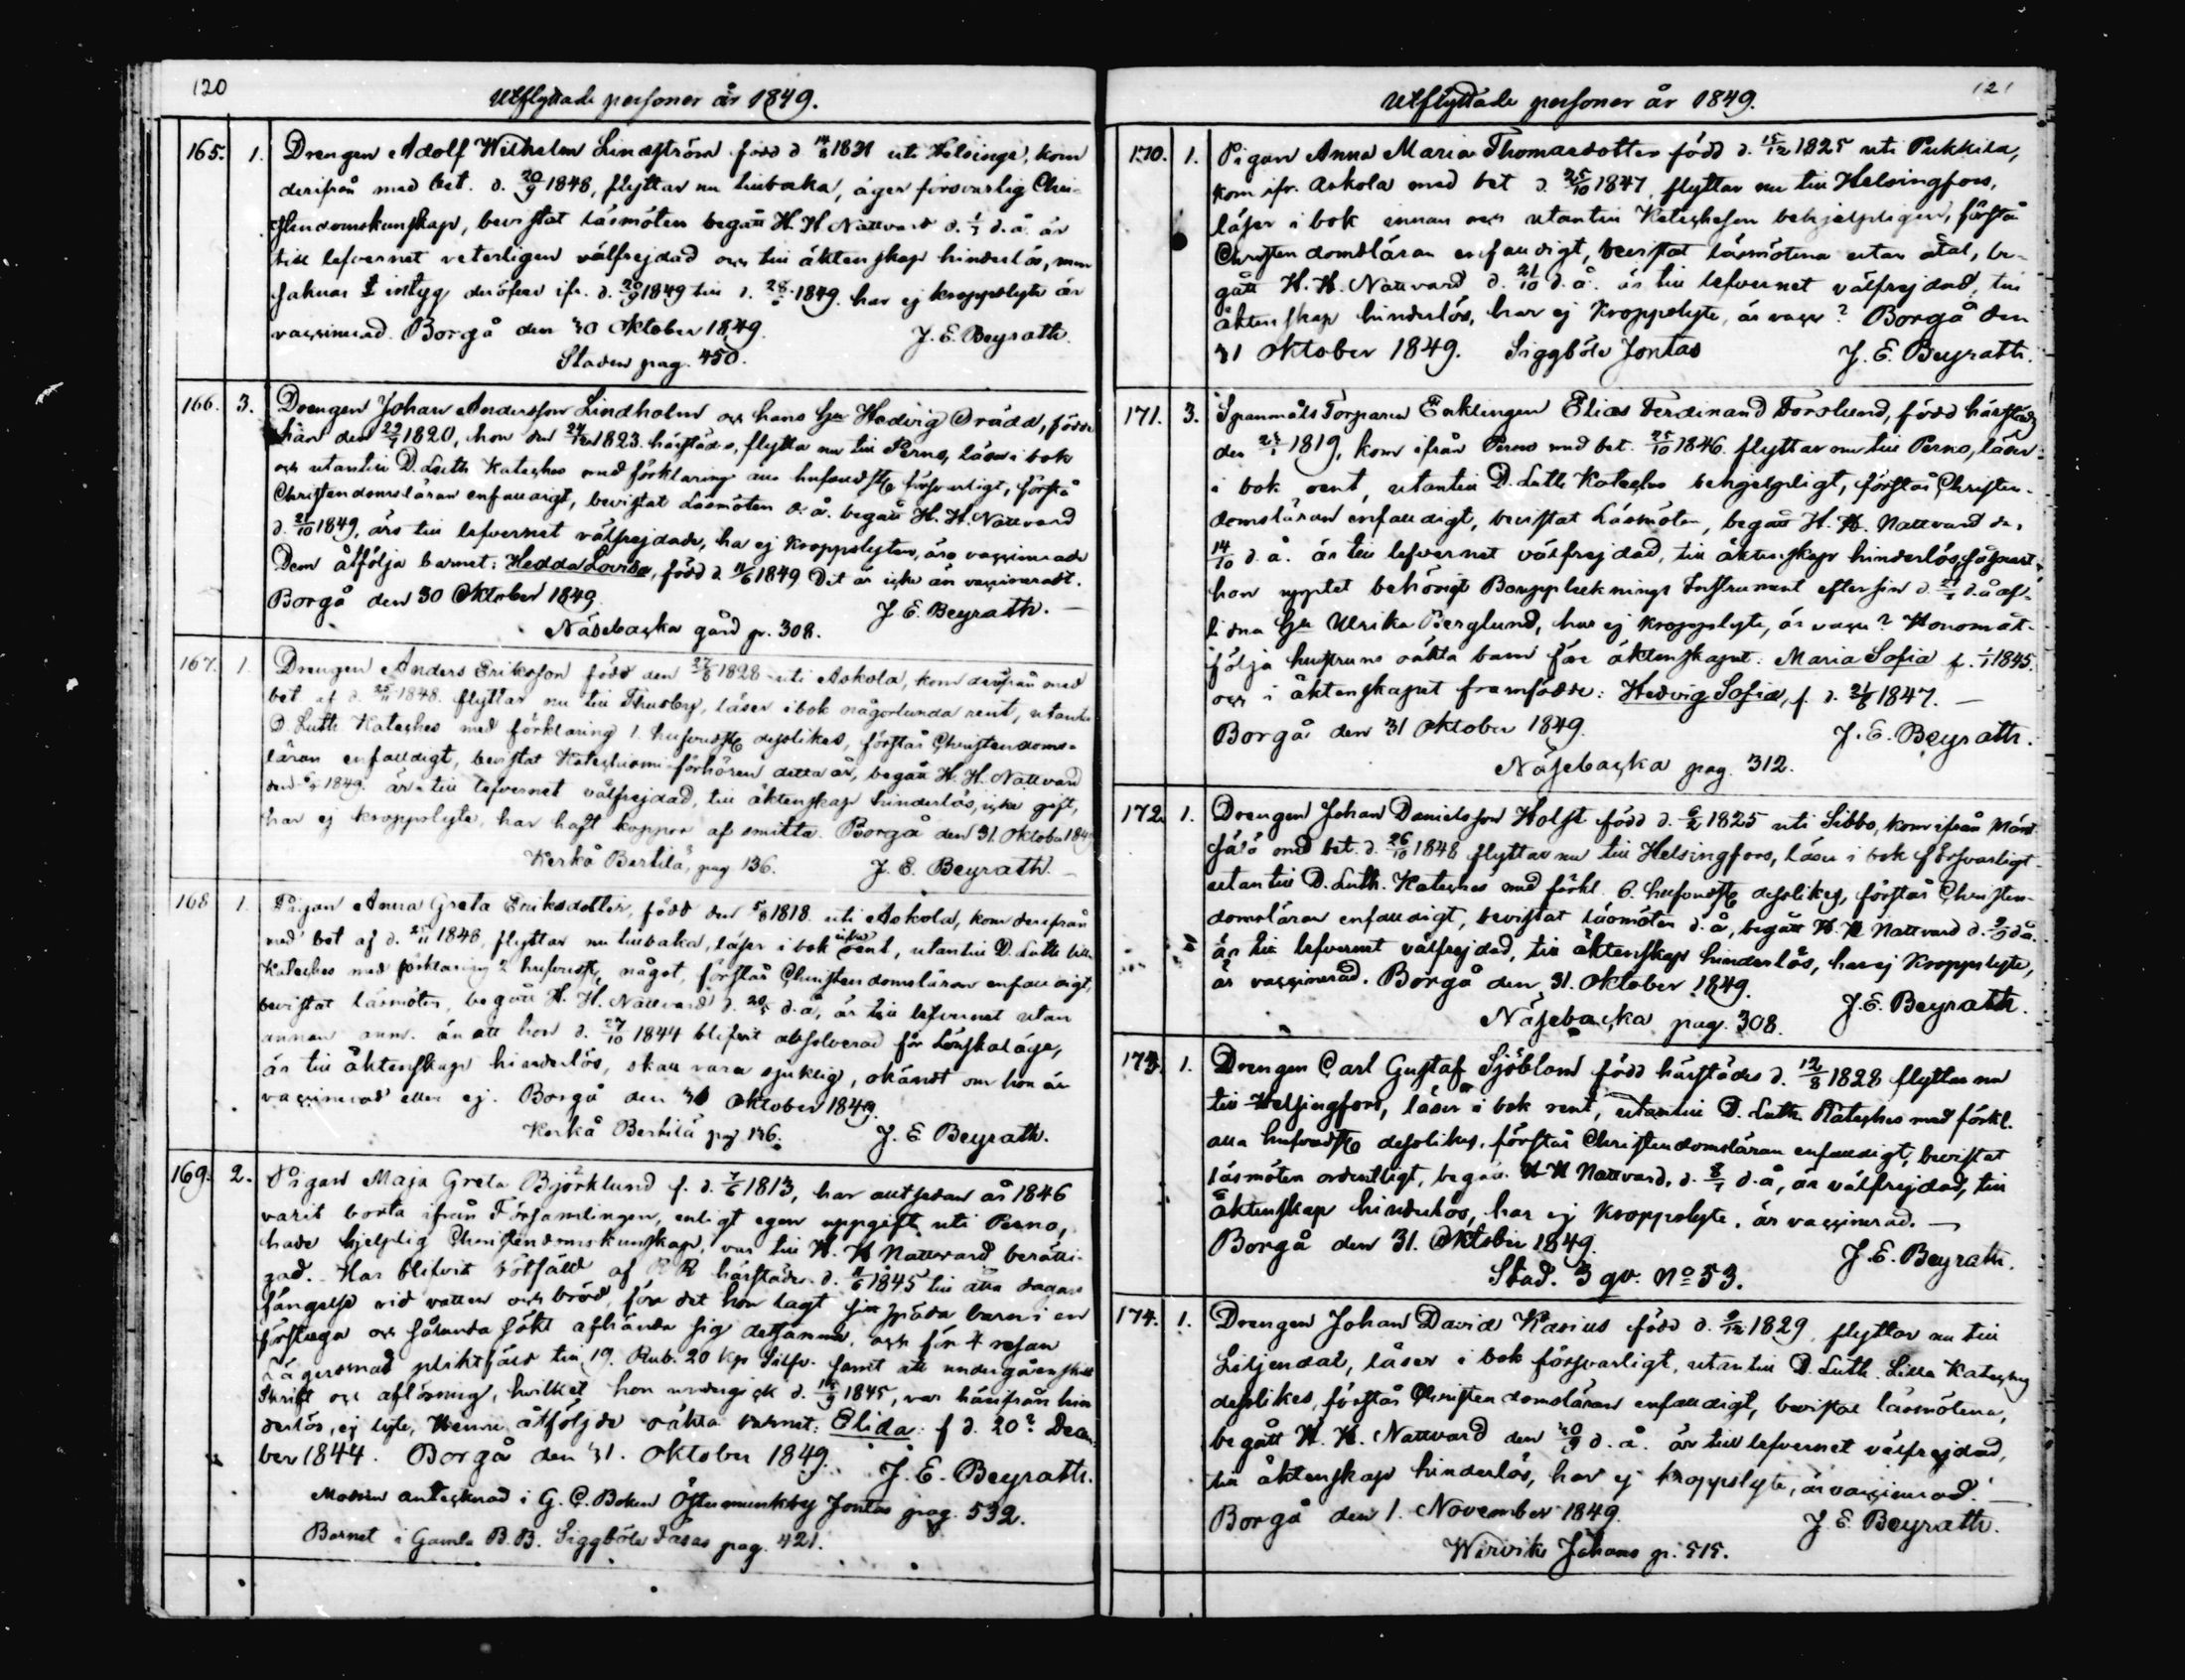 120
Utflyttade personer år 1849.
165. 1. Drengen Adolf Wilhelm Lindström född d 1821 uti Helsinge, kom
derifrån med bet. d. 20/9 1848, flyttar nu tillbaka, äger försvarlig Chri-
stendomskunskap, bevistat läsmöten begått H. H. Nattvard d. d. å. är
till lefvernet veterligen välfrejdad och till äktenskap hinderlös, men
saknar intyg deröfver ifr. d. 20/9 1849 till d. 1849. har ej kroppslyte är
vaccinerad. Borgå den 30 Oktober 1849. J. E. Beyrath.
Staden pag. 450.
166. 3. Drengen Johan Andersson Lindholm och hans Hu Hedvig Grädd, födde
han den 1820, hon den 1823. härstädes, flytta nu till Perno, läsa i bok
och utantill D. Luth Kateches med förklaring alla hufvudst försvarligt, förstå
Christendomsläran enfaldigt, bevistat Läsmöten d. å. begått H. H. Nattvard
d. 21/10 1849, äro till lefvernet välfrejdade, ha ej kroppslyten, äro vaccinerade
Dem åtfölja barnet: Hedda Lovisa, född d. 1849 Det är icke än vaccineradt.
Borgå den 30 Oktober 1849. J. E. Beyrath.
Näsebacka gård pg. 308.
167. 1. Drengen Anders Eriksson född den 1828 uti Askola, kom derifrån med
bet af d. 1848. flyttar nu till Thusby, läser i bok någorlunda rent, utantill
D. Luth Kateches med förklaring 1. hufvudst desslikes, förstår Christendoms-
läran enfaldigt, bevistat Katechismi förhören detta år, begått H. H. Nattvard
den 1849. är till lefvernet välfrejdad, till äktenskap hinderlös, icke gift,
har ej kroppslyte, har haft koppor af smitta. Borgå den 31. Oktober 1849
Kerkå Bertilä, pag 136. J. E. Beyrath.
168 1. Pigan Anna Greta Eriksdotter, född den 5/8 1818 uti Askola, kom derifrån
med bet af d. 1848, flyttar nu tillbaka, läser i bok rent, utantill D. Luth lilla
Kateches med förklaring 2 hufvudst, något, förstår Christendomsläran enfaldigt,
bevistat läsmöten, begått H. H. Nattvard d. 20/5 d. å, är till lefvernet utan
annan anm. än att hon d. 27/10 1844 blifvit absolverad för Lönskaläge,
är till äktenskap hinderlös, skall vara sjuklig, okändt om hon är
vaccinerad eller ej. Borgå den Oktober 1849.
Kerkå Bertilä pag 136. J. E. Beyrath.
169. 2. Pigan Maja Greta Björklund f. d. 7/6 1813, har alltsedan år 1846
varit borta ifrån Församlingen, enligt egen uppgift uti Perno,
hade hjelplig Christendomskunskap, var till H. H Nattvard berätti-
gad. Har blifvit Bötfälld af R R härstädes d. 1845 till åtta dagars
fängelse vid vatten och bröd, för det hon lagt sitt späda barn i en
förstuga och sålunda sökt afhända sig detsamma, och för resan
lägersmål pliktfäld till 19. Rub. 20 Kp Silfv. samt att undergå enskilt
Skrift och aflösning, hvilket hon undergick d. 1845, var härifrån hin
derlös, ej lyte, Henne åtföljde oäkta barnet: Elida: f d. 20? Decem-
ber 1844. Borgå den 31. Oktober 1849. J. E. Beyrath.
Modren antecknad i G. C. Boken Östermunkby Jontas pag. 532.
Barnet i Gamla B. B. Siggböle Jasas pag. 421.
121
Utflyttade personer år 1849.
170. 1. Pigan Anna Maria Thomasdotter född d. 15/12 1825 uti Pukkila,
kom ifr. Askola med bet d. 25/10 1847, flyttar nu till Helsingfors,
läser i bok innan och utantill Katechesen behjelpligen, förstår
Christendomsläran enfaldigt, bevistat läsmötena utan åtal, be-
gått H. H. Nattvard d. 21/10 d. å. är till lefvernet välfrejdad, till
äktenskap hinderlös, har ej Kroppslyte, är vacc? Borgå den
31 Oktober 1849. Siggböle Jontas J. E. Beyrath.
171. 3. Spanmåls Torparen Enklingen Elias Ferdinand Forslund, född härstädes
den 1819, kom ifrån Perno med bet. 25/10 1846. flyttar nu till Perno, läser
i bok rent, utantill D. Luth Kateches behjelpligt, förstår Christen-
domsläran enfaldigt, bevistat Läsmöten, begått H. H. Nattvard d.
14/10 d. å. är till lefvernet välfrejdad, till äktenskap hinderlös,
han upptet behörigt Boupptecknings Instrument efter sin d. d. å af-
lidna Hu Ulrika Berglund, har ej kroppslyte, är vacc? Honom åt-
följa hustruns oäkta barn före äktenskapet: Maria Sofia f. 1845.
och i äktenskapet framfödde: Hedvig Sofia, f. d. 1847.
Borgå den 31 Oktober 1849. J. E. Beyrath.
Näsebacka pag. 312.
172. 1. Drengen Johan Danielsson Holst född d. 6/2 1825 uti Sibbo, kom ifrån
med bet. d. 26/10 1848 flyttar nu till Helsingfors, läser i bok försvarligt
utantill D. Luth. Kateches med förkl. 6. hufvudst desslikes, förstår Christen-
domsläran enfaldigt, bevistat läsmöten d. å, begått H. H Nattvard d. d. å.
är till lefvernet välfrejdad, till äktenskap hinderlös, har ej Kroppslyte,
är vaccinerad. Borgå den 31. Oktober 1849.
Näsebacka pag. 308. J. E. Beyrath.
173. 1. Drengen Carl Gustaf Sjöblom född härstädes d. 12/8 1828 flyttar nu
till Helsingfors, läser i bok rent, utantill D. Luth. Kateches med förkl.
alla hufvudst desslikes, förstår Christendomsläran enfaldigt, bevistat
läsmöten ordentligt, begått H H Nattvard, d. d. å, är välfrejdad, till
äktenskap hinderlös, har ej Kroppslyte, är vaccinerad.
Borgå den 31. Oktober 1849. J. E. Beyrath.
Stad. 3 qv. No 53.
174. 1. Drengen Johan David Kasius född d. 1829, flyttar nu till
Liljendal, läser i bok försvarligt, utantill D. Luth. Lilla Kateches
desslikes, förstår Christendomsläran enfaldigt, bevistat läsmötena,
begått H. H. Nattvard den d. å. är till lefvernet välfrejdad,
till äktenskap hinderlös, har ej kroppslyte, är vaccinerad.
Borgå den 1. November 1849. J. E. Beyrath.
Wirviks Johans pg. 515.